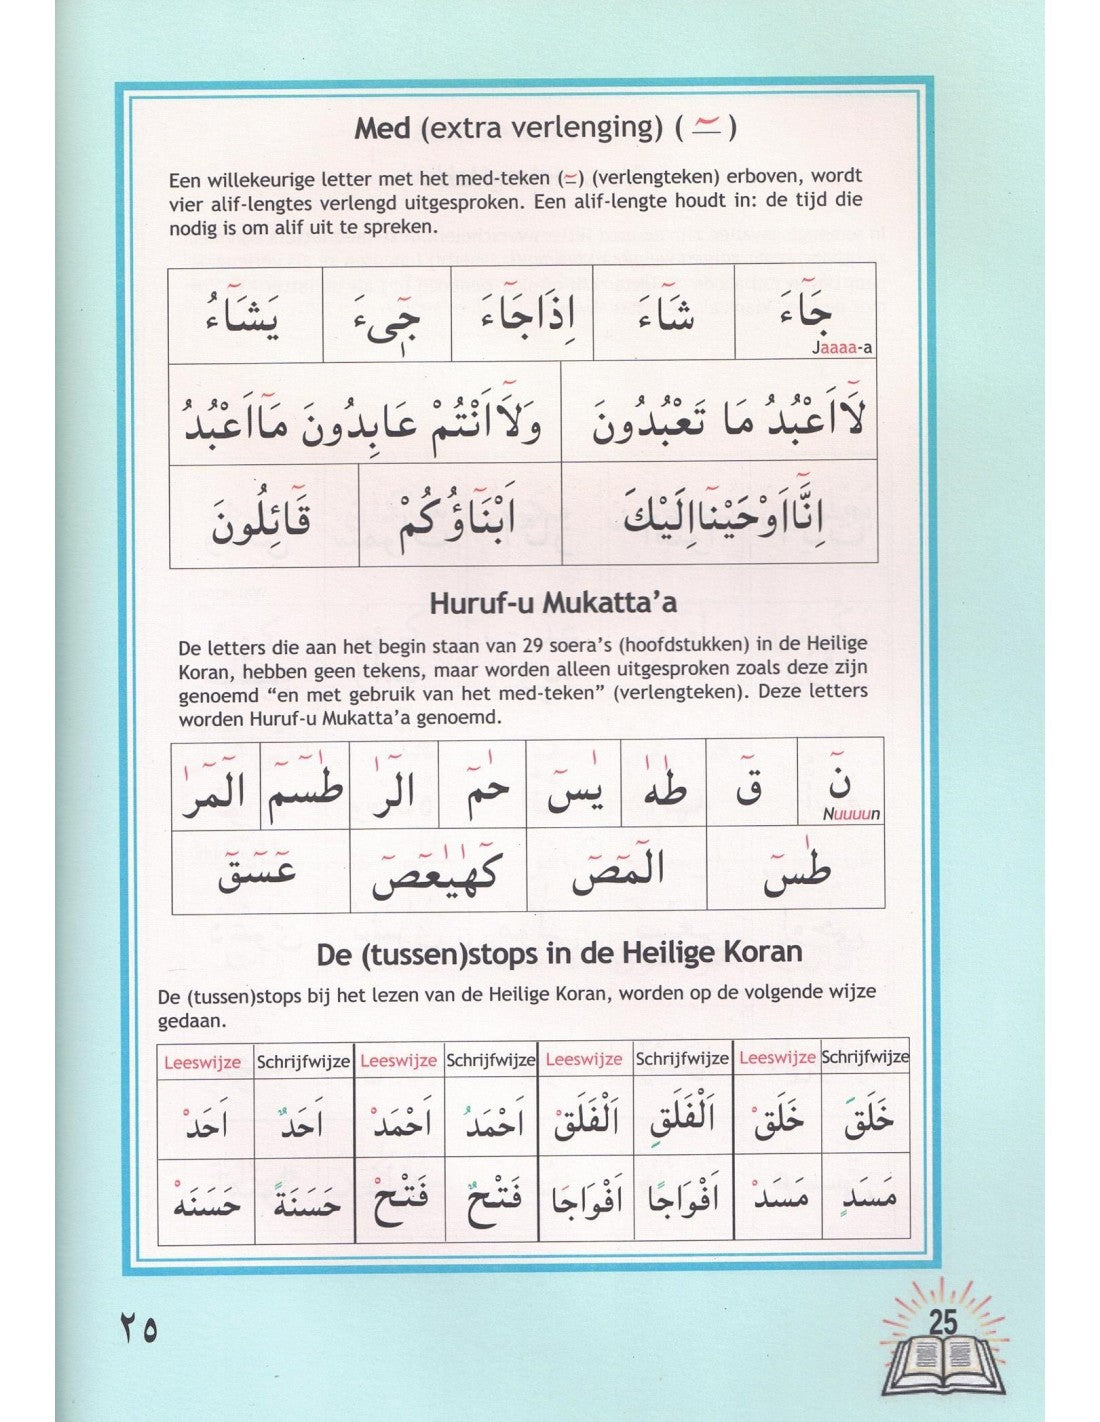 Med (extra verlenging) ( ـٓ )
Een willekeurige letter met het med-teken (ـٓ) (verlengteken) erboven, wordt
vier alif-lengtes verlengd uitgesproken. Een alif-lengte houdt in: de tijd die
nodig is om alif uit te spreken.
جَٓاءَ شَٓاءَ اِذَاجَٓاءَ جٖٓىءَ يَشَٓاءُ
Jaaaa-a
لَٓااَعْبُدُ مَا تَعْبُدُونَ وَلَٓااَنْتُمْ عَابِدُونَ مَٓااَعْبُدُ
اِنَّٓااَوْحَيْنَٓااِلَيْكَ اَبْنَٓاؤُكُمْ قَٓائِلُونَ
Huruf-u Mukatta’a
De letters die aan het begin staan van 29 soera’s (hoofdstukken) in de Heilige
Koran, hebben geen tekens, maar worden alleen uitgesproken zoals deze zijn
genoemd “en met gebruik van het med-teken” (verlengteken). Deze letters
worden Huruf-u Mukatta’a genoemd.
نٓ قٓ طٰهٰ يٰسٓ حٰمٓ الٓرٰ طٰسٓمٓ الٓمٓرٰ
Nuuuun
طٰسٓ الٓمٓصٓ كٓهٰيٰعٓصٓ عٓسٓقٓ
De (tussen)stops in de Heilige Koran
De (tussen)stops bij het lezen van de Heilige Koran, worden op de volgende wijze
gedaan.
Leeswijze Schrijfwijze Leeswijze Schrijfwijze Leeswijze Schrijfwijze Leeswijze Schrijfwijze
خَلَقَ خَلَقْ اَلْفَلَقِ اَلْفَلَقْ اَحْمَدُ اَحْمَدْ اَحَدٌ اَحَدْ
مَسَدٍ مَسَدْ اَفْوَاجًا اَفْوَاجَا فَتْحٌ فَتْحْ حَسَنَةً حَسَنَهْ
٢٥
25